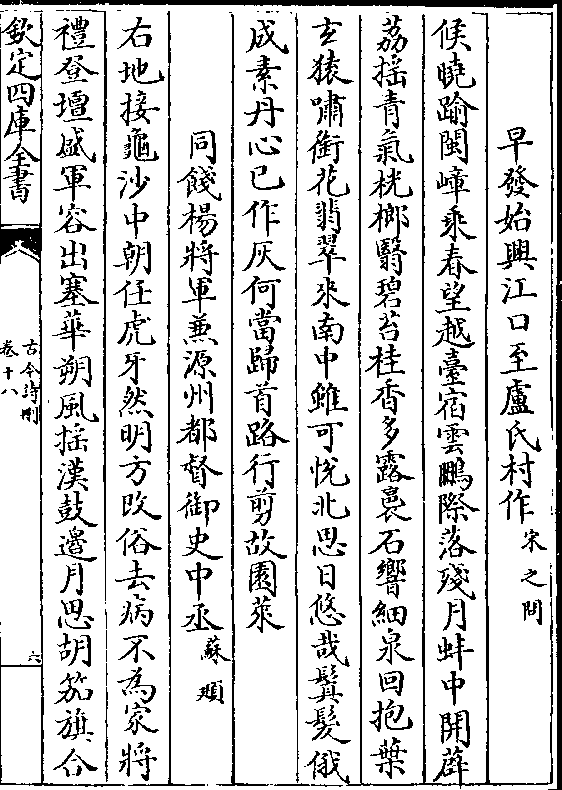 早發始興江口至盧氏村作 宋之問
候曉踰閩嶂乘春望越臺宿雲鵬際落殘月蚌中開薜
荔揺青氣桄榔翳碧苔桂香多露裛石響細泉回抱葉
玄猿嘯銜花翡翠來南中雖可悅北思日悠哉鬒髮俄
成素丹心已作灰何當歸首路行剪故園萊
同餞楊將軍兼源州都督御史中丞 蘇頲
右地接龜沙中朝任虎牙然明方改俗去病不為家將
禮登壇盛軍容出塞華朔風揺漢鼓邉月思胡笳旗合
欽定四庫全書
古今詩刪
卷十八
六